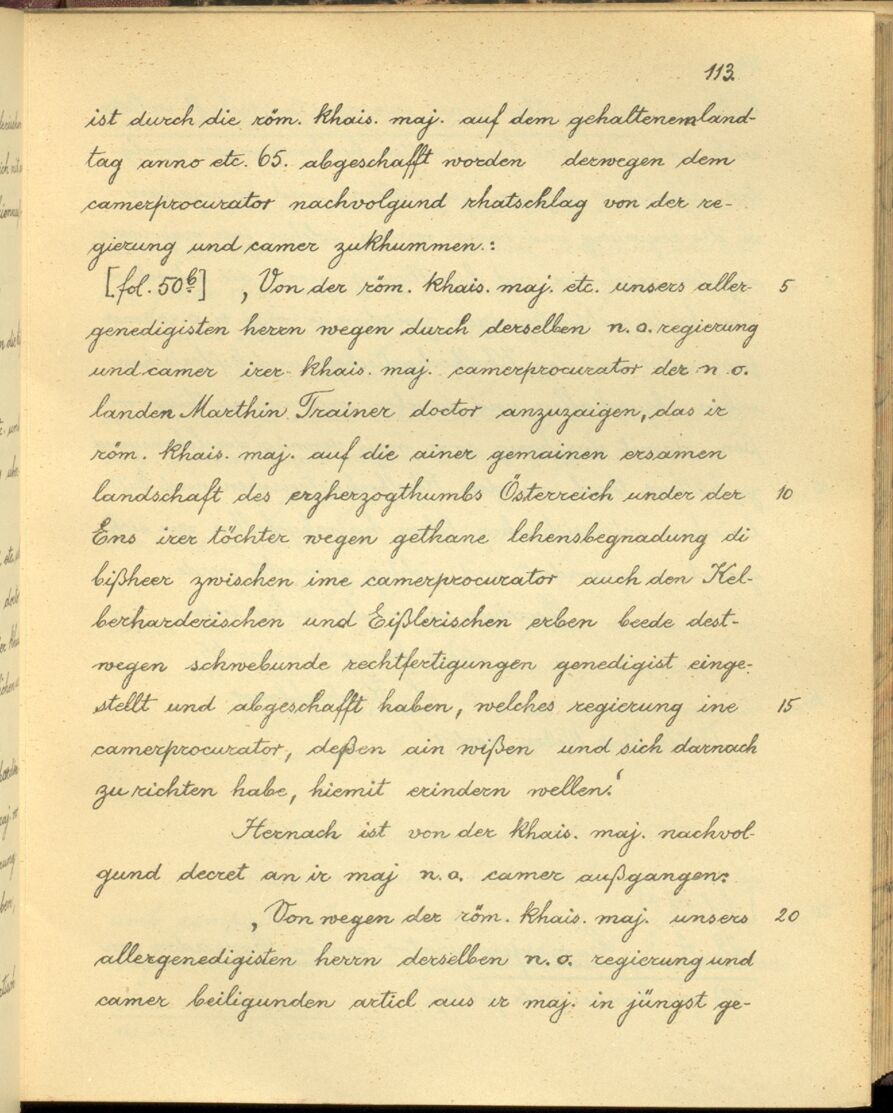 113.
ist durch die röm. khais. maj. auf dem gehaltenem land-
tag anno etc. 65. abgeschafft worden derwegen dem
camerprocurator nachvolgund rhatschlag von der re-
gierung und camer zukhummen.:
[fol. 50b] ‚Von der röm. khais. maj. etc. unsers aller- 5
genedigisten herrn wegen durch derselben n. o. regierung
und camer irer khais. maj. camerprocurator der n. o.
landen Marthin Trainer doctor anzuzaigen, das ir
röm. khais. maj. auf die ainer gemainen ersamen
landschaft des erzherzogthumbs Österreich under der 10
Ens irer töchter wegen gethane lehensbegnadung di
bißheer zwischen ime camerprocurator auch den Kel-
berharderischen und Eißlerischen erben beede dest-
wegen schwebunde rechtfertigungen genedigist einge-
stellt und abgeschafft haben, welches regierung ine 15
camerprocurator, deßen ain wißen und sich darnach
zu richten habe, hiemit erindern wellen.‘
Hernach ist von der khais. maj. nachvol-
gund decret an ir maj n. o. camer außgangen:
‚Von wegen der röm. khais. maj. unsers 20
allergenedigisten herrn derselben n. o. regierung und
camer beiligunden articl aus ir maj. in jüngst ge-